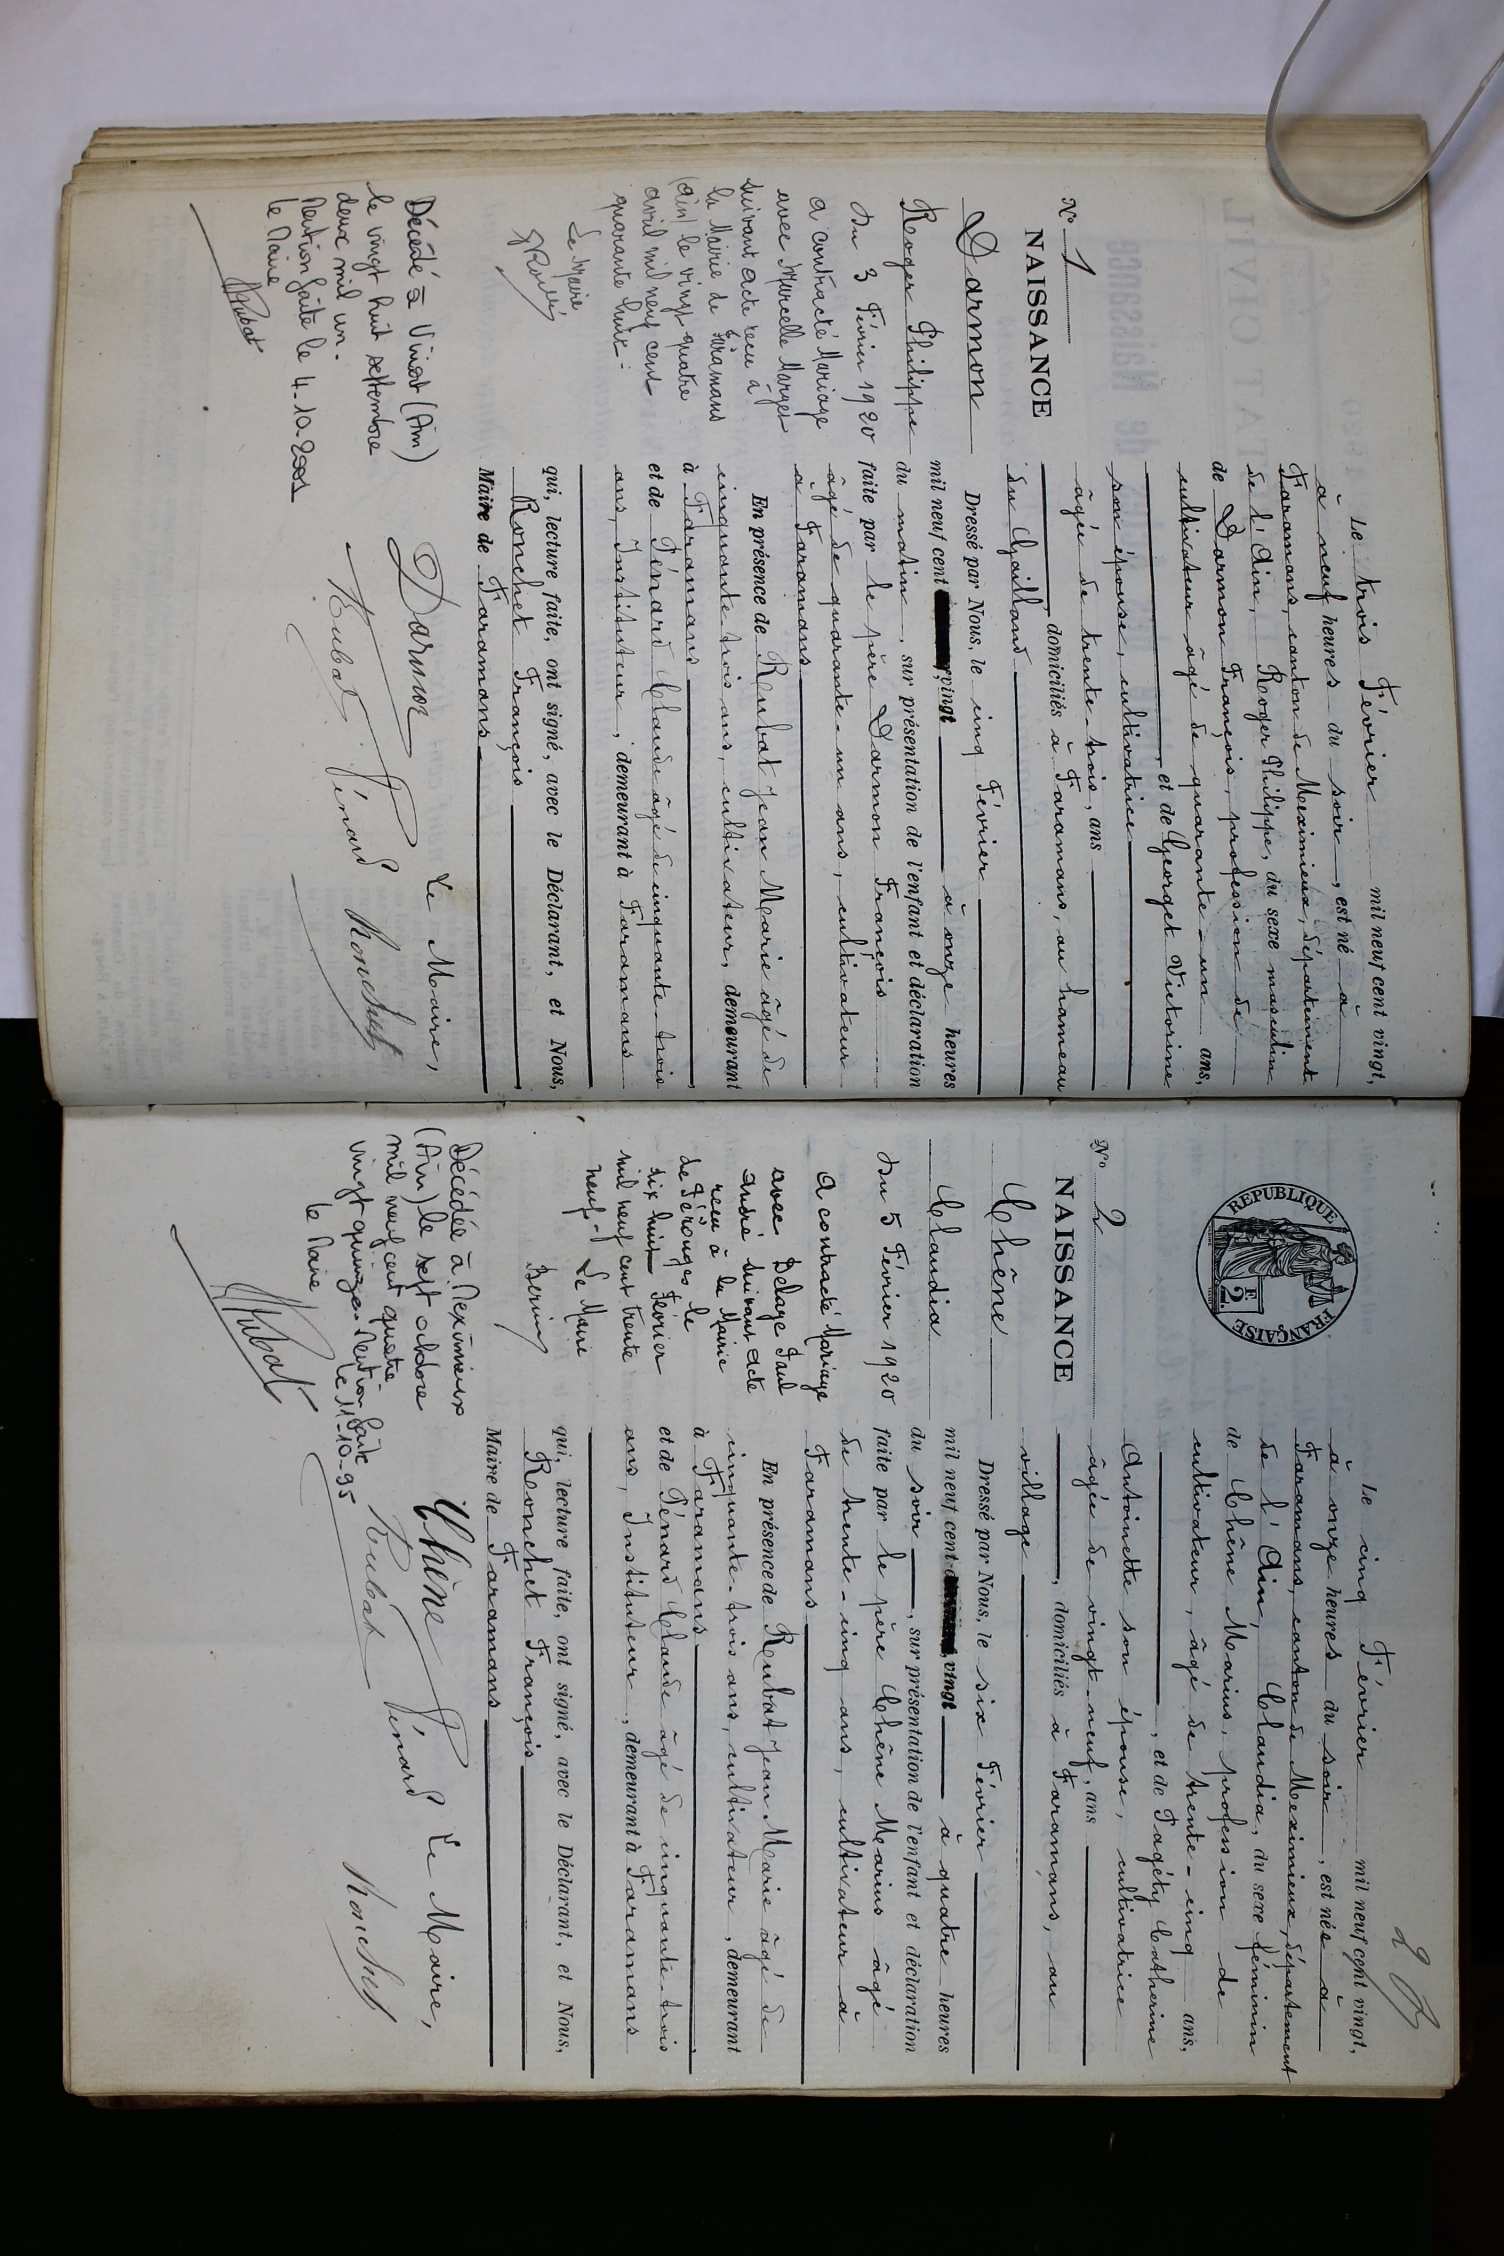 N° 1
NAISSANCE
Darmon
Roger Philippe
Du 3 Février 1920
a contracté Mariage
avec Marcelle Marget
suivant acte reçu à
la Mairie de Faramans
(Ain) le vingt quatre
avril mil neuf cent
quarante huit.
Le Maire
Décédé à Viriat (Ain)
le vingt huit septembre
deux mil un.
Mention faite le 4-10-2001
le Maire
Rubat
Le trois Février mil neuf cent vingt,
à neuf heures du soir, est né à
Faramans, canton de Meximieux, département
de l'Ain, Roger Philippe, du sexe masculin
de Darmon François, profession de
cultivateur âgé de quarante-un ans,
et de Georget Victorine
son épouse, cultivatrice
âgée de trente-trois, ans
domiciliés à Faramans, au hameau
du Gaillard
Dressé par Nous, le cinq Février
mil neuf cent vingt à onze heures
du matin, sur présentation de l'enfant et déclaration
faite par le père Darmon François
âgé de quarante-un ans, cultivateur
à Faramans
En présence de Rubat Jean Marie âgé de
cinquante trois ans, cultivateur, demeurant
à Faramans
et de Pénard Claude âgé de cinquante-trois
ans, Instituteur, demeurant à Faramans
qui, lecture faite, ont signé, avec le Déclarant, et Nous,
Ronchet François
Maire de Faramans
Le Maire,
Darmon
Rubat Pénard Ronchet
2
RÉPUBLIQUE FRANÇAISE
2 F
N° 2
NAISSANCE
Chêne
Claudia
Du 5 Février 1920
A contracté Mariage
avec Delage Paul
André suivant acte
reçu à la Mairie
de Pérouges le
dix huit Février
mil neuf cent trente
neuf. Le Maire
Décédée à Meximieux
(Ain) le sept octobre
mil neuf cent quatre
vingt quinze. Mention faite
le 11-10-95
le Maire
Rubat
Le cinq Février mil neuf cent vingt,
à onze heures du soir, est née à
Faramans, canton de Meximieux, département
de l'Ain, Claudia, du sexe féminin
de Chêne Marius, profession de
cultivateur, âgé de trente-cinq ans,
et de Pagéty Catherine
Antoinette son épouse, cultivatrice
âgée de vingt-neuf, ans
domiciliés à Faramans, au
village
Dressé par Nous, le six Février
mil neuf cent vingt à quatre heures
du soir, sur présentation de l'enfant et déclaration
faite par le père Chêne Marius âgé
de trente-cinq ans, cultivateur à
Faramans
En présence de Rubat Jean Marie âgé de
cinquante-trois ans, cultivateur, demeurant
à Faramans
et de Pénard Claude âgé de cinquante-trois
ans, Instituteur, demeurant à Faramans
qui, lecture faite, ont signé, avec le Déclarant, et Nous,
Ronchet François
Maire de Faramans
Le Maire,
Chêne
Rubat Pénard Ronchet